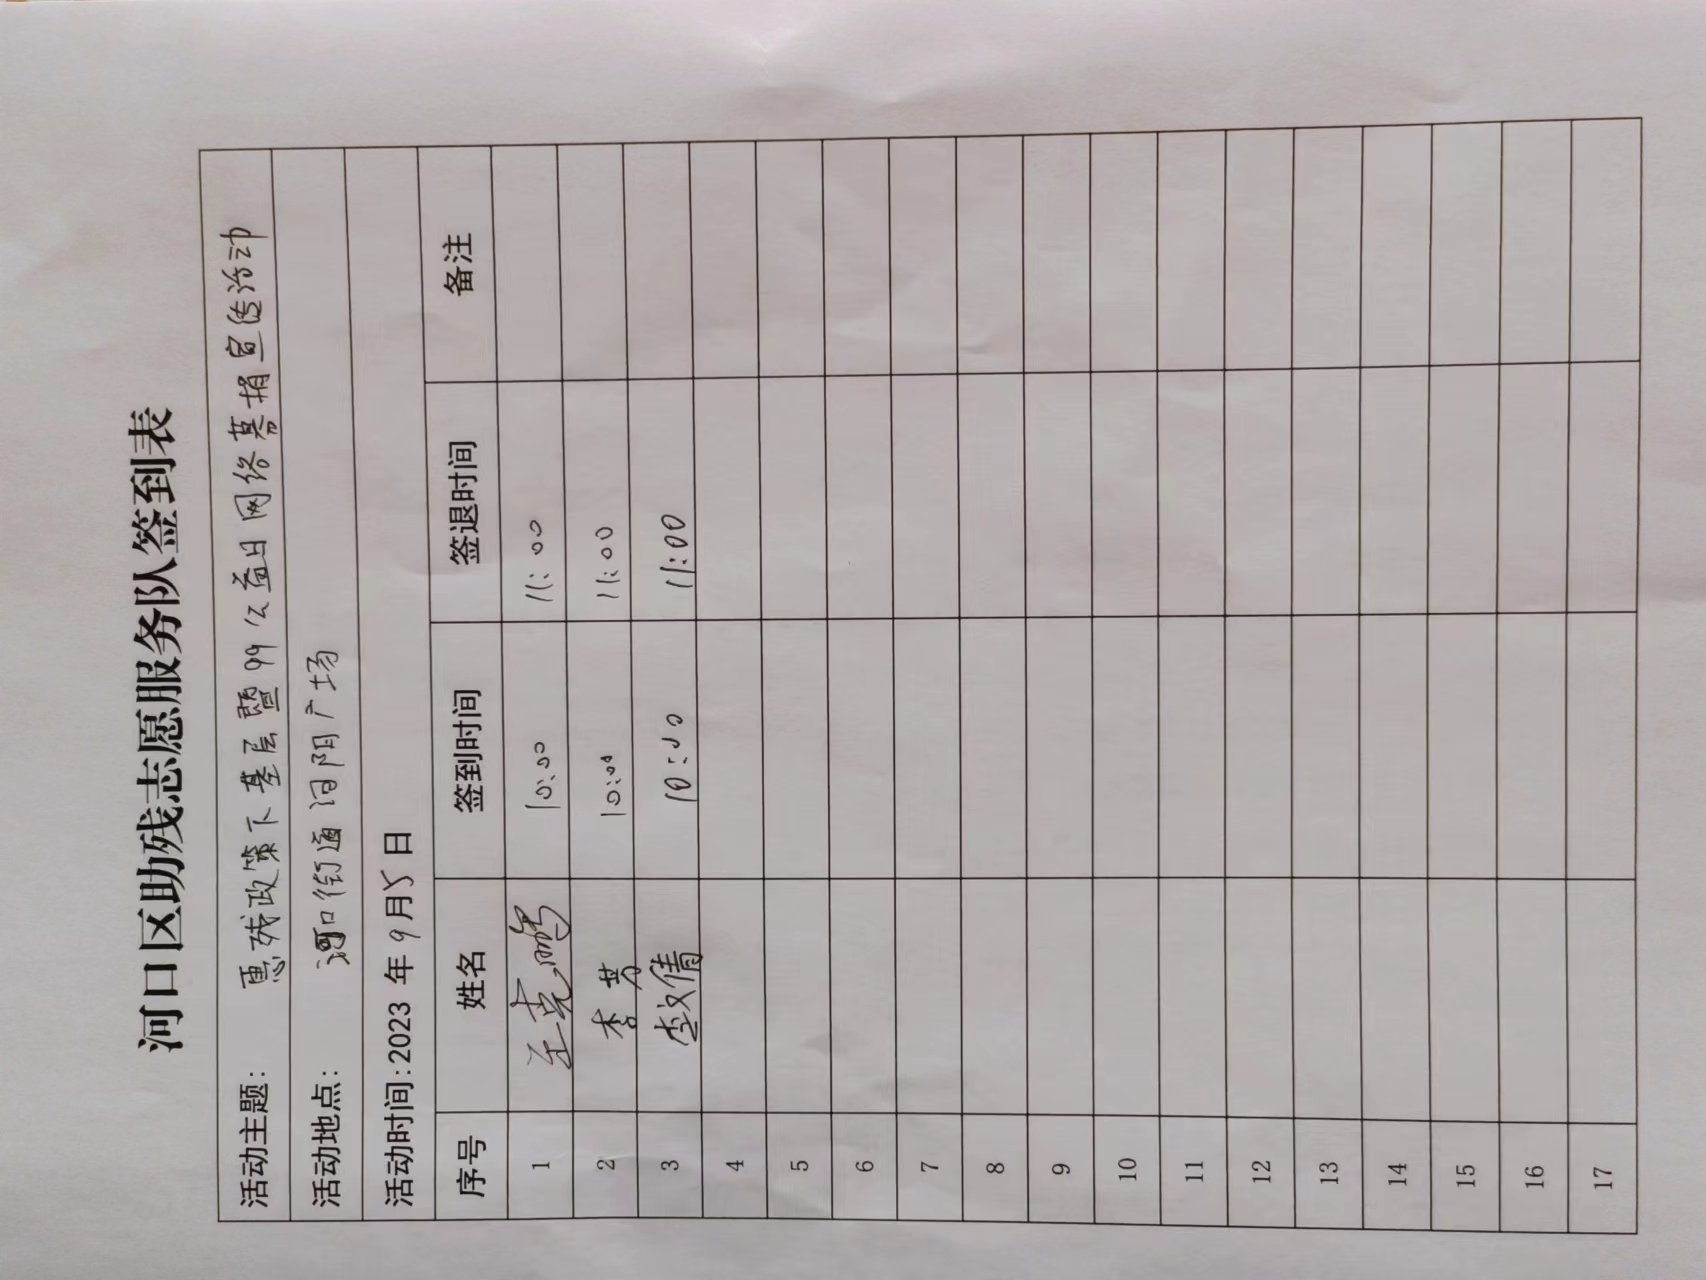 河口区助残志愿服务队签到表
活动主题: 惠残政策下基层暨99公益日网络募捐宣传活动
活动地点: 河口街道河阳广场
活动时间:2023 年 9 月 5 日
序号 姓名 签到时间 签退时间 备注
1 10:00 11:00
2 李芳 10:00 11:00
3 李文倩 10:00 11:00
4
5
6
7
8
9
10
11
12
13
14
15
16
17